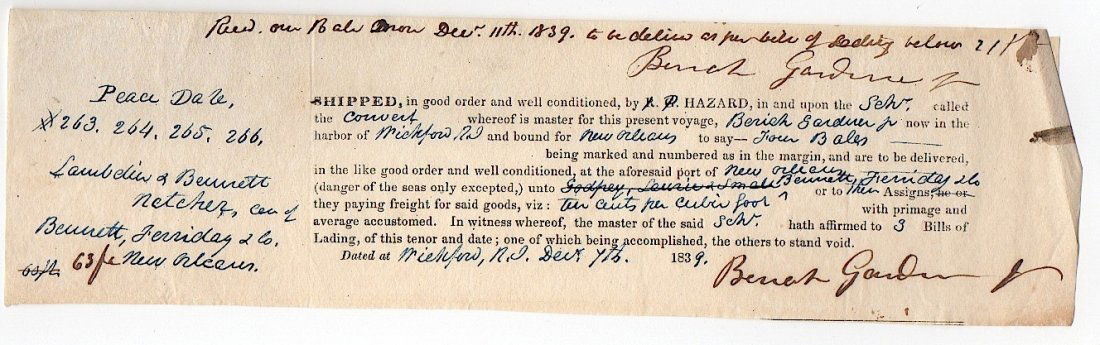 Recd. one Bale more Decr. 11th. 1839. to be deliverd as per bill of Lading below 21
Beriah Gardner Jr
Peace Dale,
X 263. 264. 265. 266,
Lambdin & Bennett
Natchez, care of
Bennett, Ferriday & Co.
63ft 63 ft New Orleans.
SHIPPED, in good order and well conditioned, by R. P. HAZARD, in and upon the Schr. called
the Convert whereof is master for this present voyage, Beriah Gardner Jr now in the
harbor of Wickford, R.I and bound for New Orleans to say— Four Bales
being marked and numbered as in the margin, and are to be delivered,
in the like good order and well conditioned, at the aforesaid port of New Orleans
(danger of the seas only excepted,) unto Godfrey, Laurie & Small Bennett, Ferriday & Co or to their Assigns, he or
they paying freight for said goods, viz: ten cents per cubic foot with primage and
average accustomed. In witness whereof, the master of the said Schr. hath affirmed to 3 Bills of
Lading, of this tenor and date; one of which being accomplished, the others to stand void.
Dated at Wickford, R.I. Decr 7th. 1839.
Beriah Gardner Jr